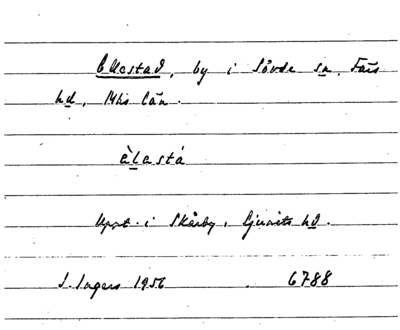 Ellestad, by i Sövde sn, Färs
hd, Mhs län.
èlastá
Uppt. i Skårby, Ljunits hd.
S. Ingers 1956 6788